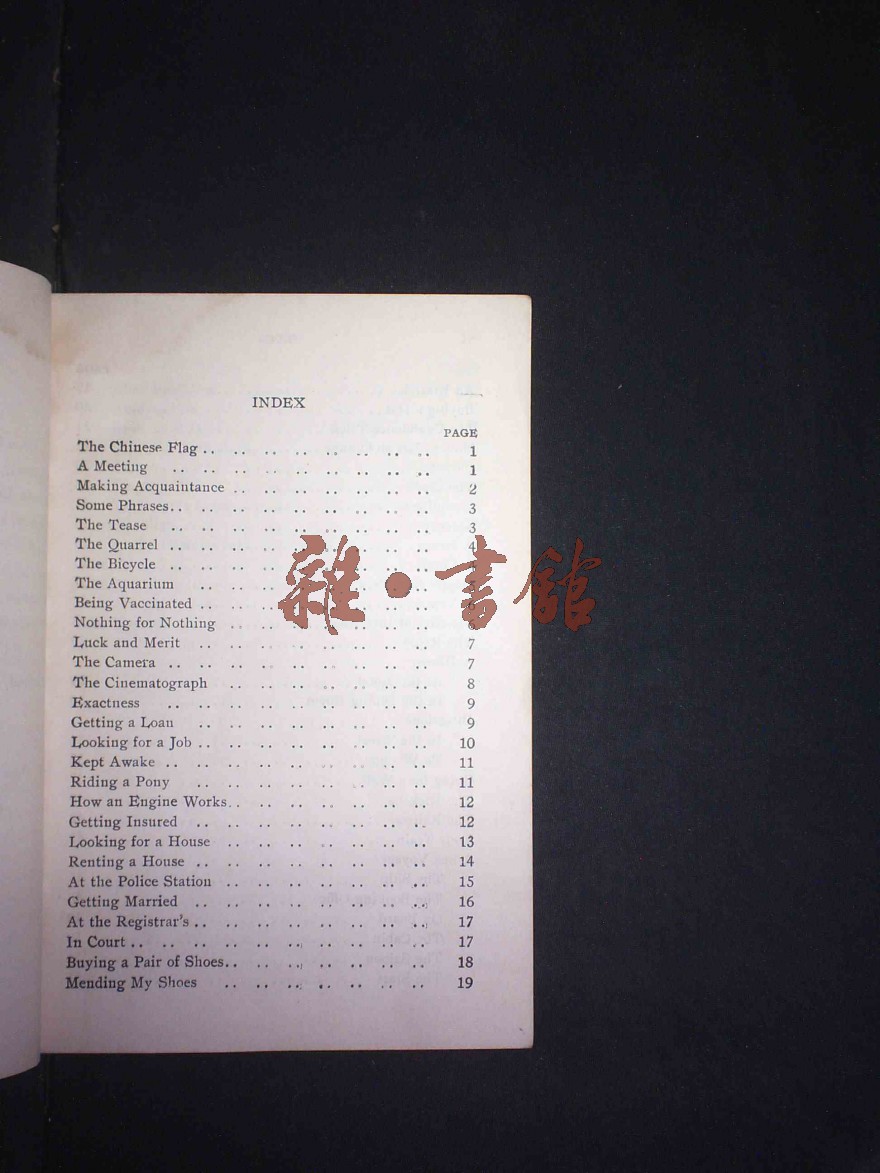 INDEX
PAGE
The Chinese Flag .. .. .. .. .. .. .. .. 1
A Meeting .. .. .. .. .. .. .. .. .. 1
Making Acquaintance .. .. .. .. .. .. .. 2
Some Phrases .. .. .. .. .. .. .. .. .. 3
The Tease .. .. .. .. .. .. .. .. .. 3
The Quarrel .. .. .. .. .. .. .. .. .. 4
The Bicycle .. .. .. .. .. .. .. .. ..
The Aquarium .. .. .. .. .. .. .. ..
Being Vaccinated .. .. .. .. .. .. .. ..
Nothing for Nothing .. .. .. .. .. .. .. 6
Luck and Merit .. .. .. .. .. .. .. .. 7
The Camera .. .. .. .. .. .. .. .. .. 7
The Cinematograph .. .. .. .. .. .. .. 8
Exactness .. .. .. .. .. .. .. .. .. 9
Getting a Loan .. .. .. .. .. .. .. .. 9
Looking for a Job .. .. .. .. .. .. .. .. 10
Kept Awake .. .. .. .. .. .. .. .. .. 11
Riding a Pony .. .. .. .. .. .. .. .. 11
How an Engine Works .. .. .. .. .. .. .. 12
Getting Insured .. .. .. .. .. .. .. .. 12
Looking for a House .. .. .. .. .. .. .. 13
Renting a House .. .. .. .. .. .. .. .. 14
At the Police Station .. .. .. .. .. .. .. 15
Getting Married .. .. .. .. .. .. .. .. 16
At the Registrar's .. .. .. .. .. .. .. .. 17
In Court .. .. .. .. .. .. .. .. .. .. 17
Buying a Pair of Shoes .. .. .. .. .. .. .. 18
Mending My Shoes .. .. .. .. .. .. .. 19
雜·書館